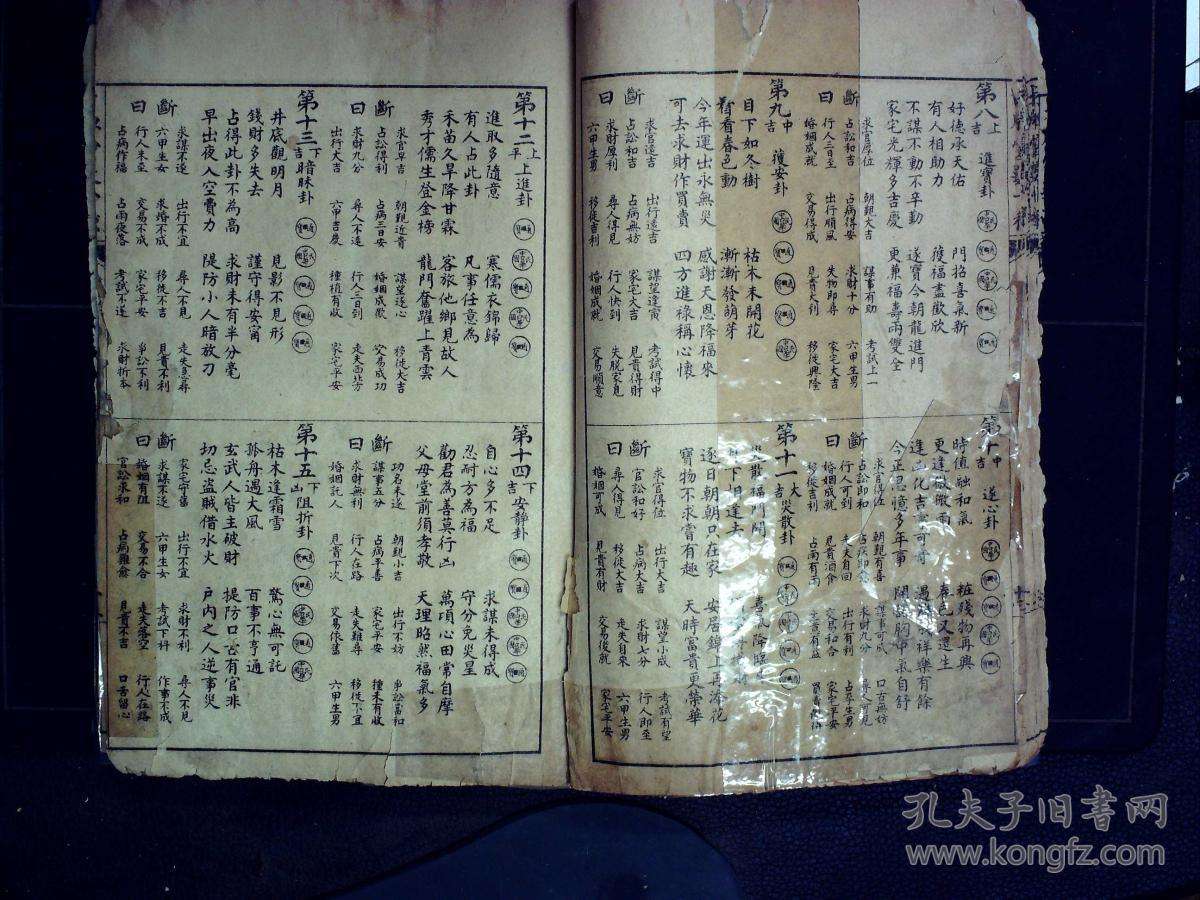 第八 上吉 進寶卦
好德承天佑 門招喜氣新
有人相助力 獲福盡歡欣
不謀不動不辛勤 遂寶今朝龍進門
家宅光輝多吉慶 更兼福壽兩雙全
斷曰
求官厚位 朝覲大吉 謀事有助 考試上一
占訟和吉 占病得安 求財十分 六甲生男
行人三日至 出行順風 失物即尋 家宅大吉
婚姻成就 交易得成 見貴大利 移徙興隆
第九 中吉 獲安卦
目下如冬樹 枯木未開花
看看春色動 漸漸發萌芽
今年運出永無災 感謝天恩降福來
可去求財作買賣 四方進祿稱心懷
斷曰
求官遠吉 出行遠吉 謀望遂實 考試得中
占訟和吉 占病無妨 家宅大吉 見貴得財
求財厚利 尋人得見 行人快到 失脫家見
六甲生男 移徙吉利 婚姻成就 交易順意
第十 中吉 遂心卦
時值融和氣 粧殘物再興
更逢微微雨 春色又還生
今正思憶多年事 胸中氣自舒
斷曰
求官得位 朝覲有喜 謀事可成 口舌無妨
占訟即和 占病即愈 求財九分 尋人可見
行人可到 走失自回 出行有利 占孕生男
婚姻成就 見貴酒食 交易和合 家宅平安
移徙吉利 占雨有雨
第十一 大吉 災散卦
災散福門開 喜氣降臨
逐日朝朝只在家 安居錦上再添花
寶物不求嘗有趣 天時富貴更榮華
斷曰
求官得位 出行大吉 謀望小成 考試有望
官訟和好 占病大吉 求財七分 行人即至
尋人得見 移徙大吉 走失自來 六甲生男
婚姻可成 見貴有財 交易後就 家宅平安
第十二 上平 上進卦
進取多隨意 寒儒衣錦歸
有人占此卦 凡事任意為
禾苗久旱降甘霖 客旅他鄉見故人
秀才儒生登金榜 龍門奮躍上青雲
斷曰
求官早吉 朝覲近貴 謀望遂心 移徙大吉
占訟得利 占病三日安 婚姻成歡 交易成功
求財九分 尋人不遠 行人三日到 走失西北方
出行大吉 六甲吉慶 種植有收 家宅平安
第十三 下吉 暗昧卦
井底觀明月 見影不見形
錢財多失去 謹守得安甯
占得此卦不為高 求財未有半分毫
早出夜入空費力 隄防小人暗放刀
斷曰
求謀不遂 出行不宜 尋人不見 走失急尋
六甲生女 求婚不成 移徙不吉 見貴不利
行人未至 交易不成 家宅平安 爭訟不利
占病作福 占雨夜落 考試不遂 求財折本
第十四 下吉 安靜卦
自心多不足 求謀未得成
忍耐方為福 守分免災星
勸君為善莫行凶 萬頃心田常自摩
父母堂前須孝敬 天理昭然福氣多
斷曰
功名未遂 朝覲小吉 出行不妨 爭訟當和
謀事五分 占病平善 家宅平安 種禾有收
求財無利 行人在路 走失難尋 移徙不宜
婚姻託人 見貴下次 交易依舊 六甲生男
第十五 下凶 阻折卦
枯木逢霜雪 驚心無可託
孤舟遇大風 百事不亨通
玄武人皆主破財 提防口舌有官非
切忌盜賊借水火 戶內之人逆事災
斷曰
家宅守舊 出行不宜 求財不利 尋人不見
求謀不遂 六甲生女 考試下科 作事不成
婚姻有阻 交易不合 走失落空 行人在路
官訟求和 占病難愈 見貴不吉 口舌留心
孔夫子旧书网
www.kongfz.com